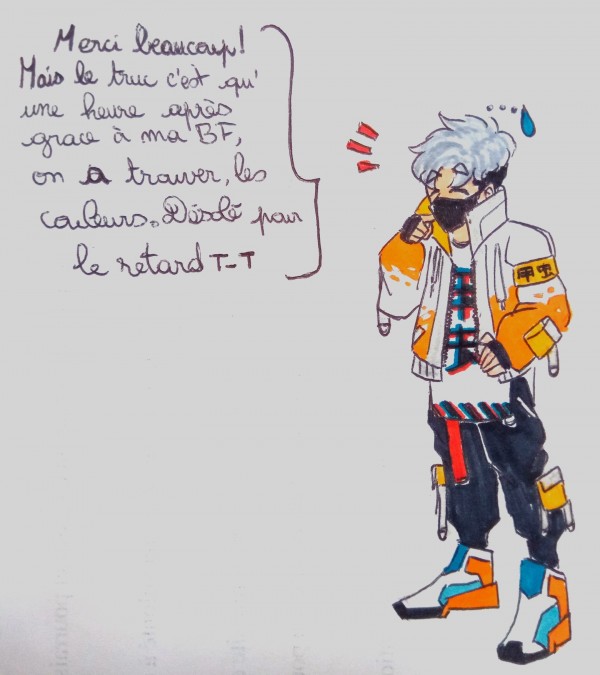 Merci beaucoup!
Mais le truc c'est qu'
une heure après
grace à ma BF,
on a trouver, les
couleurs. Désolé pour
le retard T-T
甲虫